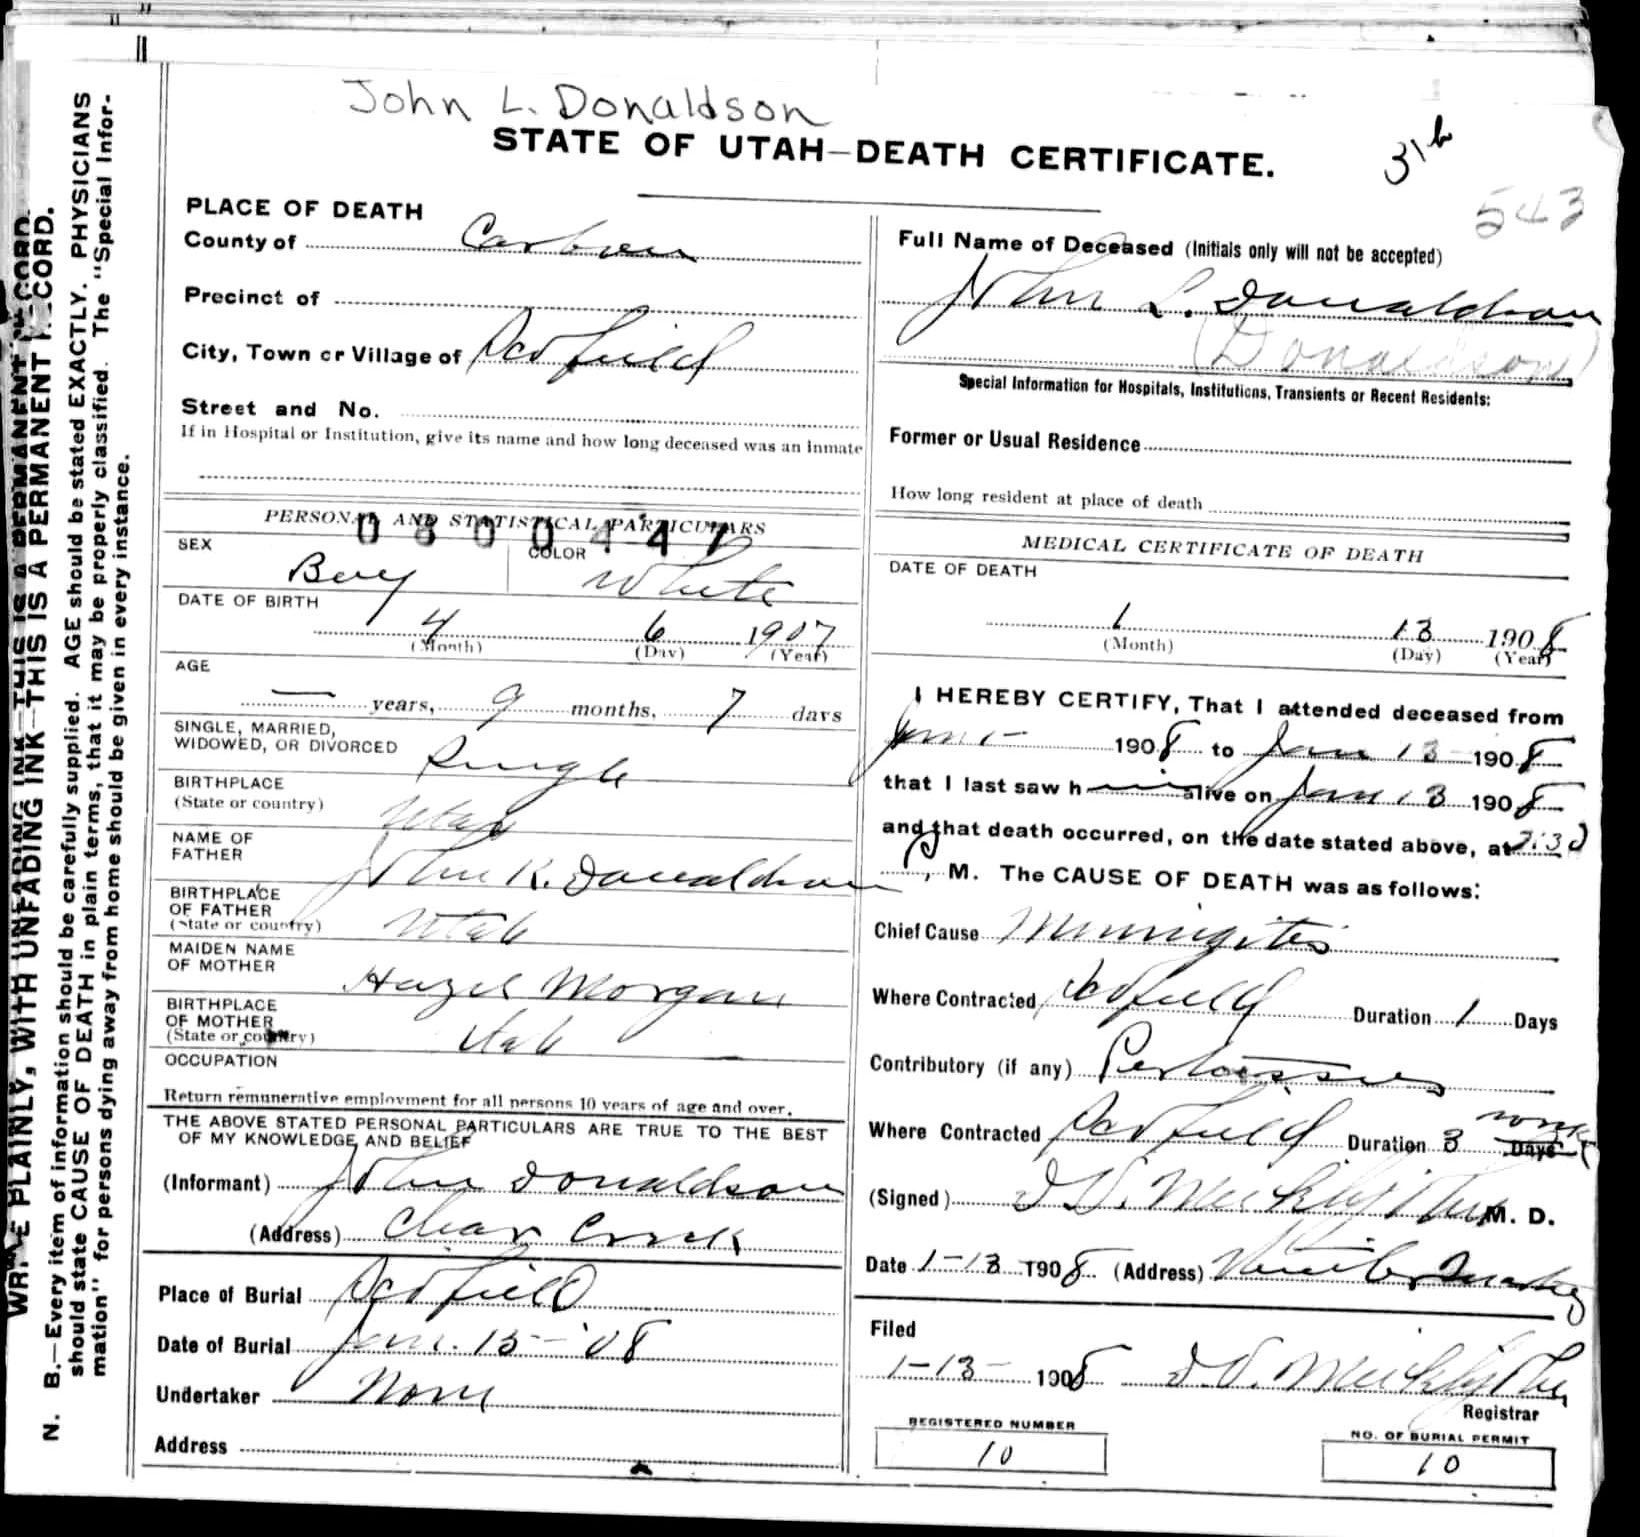 John L. Donaldson
STATE OF UTAH—DEATH CERTIFICATE.
31b
543
PLACE OF DEATH
County of Carbon
Precinct of
City, Town or Village of Scofield
Street and No.
If in Hospital or Institution, give its name and how long deceased was an inmate
Full Name of Deceased (Initials only will not be accepted)
John L. Donaldson
(Donaldson)
Special Information for Hospitals, Institutions, Transients or Recent Residents:
Former or Usual Residence
How long resident at place of death
PERSONAL AND STATISTICAL PARTICULARS
0800447
SEX Boy COLOR White
DATE OF BIRTH
4 6 1907
(Month) (Day) (Year)
AGE
— years, 9 months, 7 days
SINGLE, MARRIED,
WIDOWED, OR DIVORCED Single
BIRTHPLACE
(State or country) Utah
NAME OF
FATHER John K. Donaldson
BIRTHPLACE
OF FATHER
(State or country) Utah
MAIDEN NAME
OF MOTHER Hazel Morgan
BIRTHPLACE
OF MOTHER
(State or country) Utah
OCCUPATION —
Return remunerative employment for all persons 10 years of age and over.
THE ABOVE STATED PERSONAL PARTICULARS ARE TRUE TO THE BEST
OF MY KNOWLEDGE AND BELIEF
(Informant) John Donaldson
(Address) Clear Creek
Place of Burial Scofield
Date of Burial Jan. 15-'08
Undertaker None
Address
MEDICAL CERTIFICATE OF DEATH
DATE OF DEATH
1 13 1908
(Month) (Day) (Year)
I HEREBY CERTIFY, That I attended deceased from
Jan 1- 1908 to Jan 13 1908
that I last saw him alive on Jan 13 1908
and that death occurred, on the date stated above, at 2:30
P, M. The CAUSE OF DEATH was as follows:
Chief Cause Meningitis
Where Contracted Scofield Duration 1 Days
Contributory (if any) Pertussis
Where Contracted Scofield Duration 3 Days
(Signed) M. D.
Date 1-13 1908 (Address) Winter Quarters
Filed
1-13- 1908
Registrar
REGISTERED NUMBER
10
NO. OF BURIAL PERMIT
10
WRITE PLAINLY, WITH UNFADING INK—THIS IS A PERMANENT RECORD.
N. B.—Every item of information should be carefully supplied. AGE should be stated EXACTLY. PHYSICIANS
should state CAUSE OF DEATH in plain terms, that it may be properly classified. The "Special Infor-
mation" for persons dying away from home should be given in every instance.